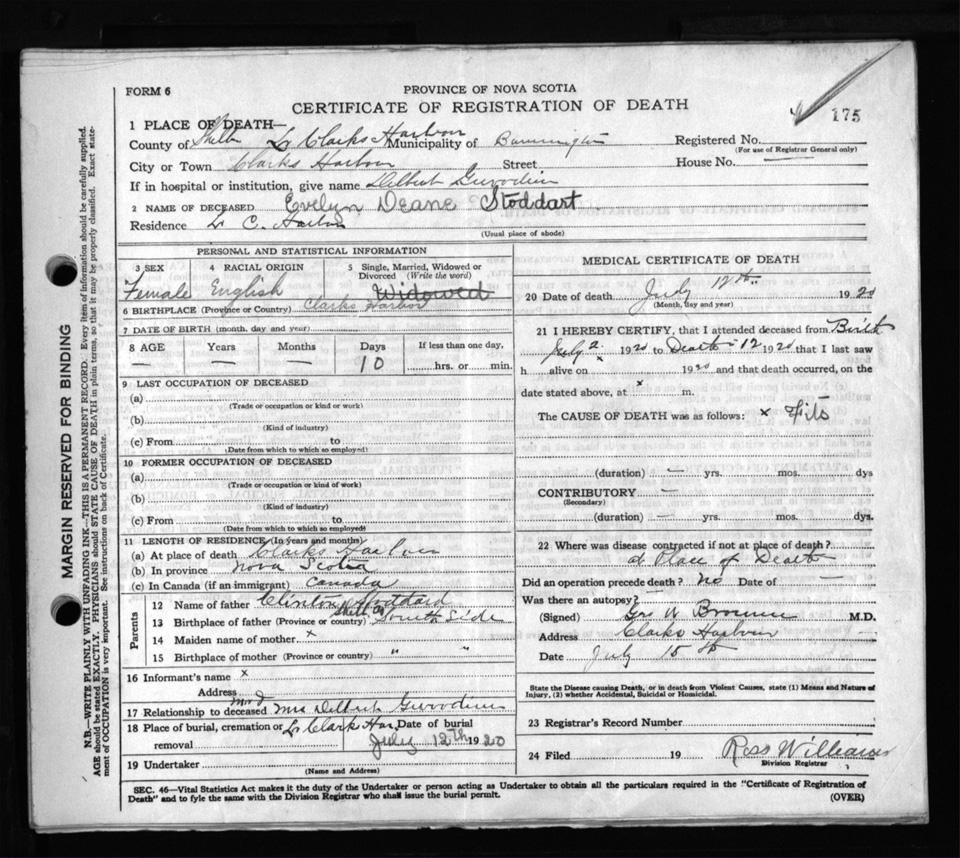 FORM 6
PROVINCE OF NOVA SCOTIA
CERTIFICATE OF REGISTRATION OF DEATH
175
1 PLACE OF DEATH—
County of Shelb L. Clarks Harbour Municipality of Barrington Registered No.
(For use of Registrar General only)
City or Town Clarks Harbour Street House No. —
If in hospital or institution, give name Delbert
2 NAME OF DECEASED Evelyn Deane Stoddart
Residence L C. Harbor
(Usual place of abode)
PERSONAL AND STATISTICAL INFORMATION
3 SEX 4 RACIAL ORIGIN 5 Single, Married, Widowed or Divorced (Write the word)
Female English Widowed
6 BIRTHPLACE (Province or Country) Clarks Harbor
7 DATE OF BIRTH (month, day and year)
8 AGE Years Months Days If less than one day,
— — — 10 hrs. or min.
9 LAST OCCUPATION OF DECEASED
(a)
(Trade or occupation or kind or work)
(b)
(Kind of industry)
(c) From to
(Date from which to which so employed)
10 FORMER OCCUPATION OF DECEASED
(a)
(Trade or occupation or kind of work)
(b)
(Kind of industry)
(c) From to
(Date from which to which so employed)
11 LENGTH OF RESIDENCE (In years and months)
(a) At place of death Clarks Harbor
(b) In province Nova Scotia
(c) In Canada (if an immigrant) Canada
Parents
12 Name of father Clinton Stoddard
13 Birthplace of father (Province or country) South Side
14 Maiden name of mother x
15 Birthplace of mother (Province or country) " "
16 Informant's name x
Address
17 Relationship to deceased Mr & Mrs Delbert
18 Place of burial, cremation or removal L Clarks Har Date of burial July 12th 1920
19 Undertaker
(Name and Address)
MEDICAL CERTIFICATE OF DEATH
20 Date of death July 12th 1920
(Month, day and year)
21 I HEREBY CERTIFY, that I attended deceased from Birth
July 2 1920 to Death - 12 1920 that I last saw
h alive on x 1920 and that death occurred, on the
date stated above, at x m.
The CAUSE OF DEATH was as follows: x Fits
(duration) — yrs. mos. dys
CONTRIBUTORY —
(Secondary)
(duration) — yrs. mos. dys.
22 Where was disease contracted if not at place of death?
at Place of Death
Did an operation precede death? No Date of —
Was there an autopsy? —
(Signed) Geo W Browne M.D.
Address Clarks Harbour
Date July 15th
State the Disease causing Death, or in death from Violent Causes, state (1) Means and Nature of
Injury, (2) whether Accidental, Suicidal or Homicidal.
23 Registrar's Record Number
24 Filed 19 Ross Williams
Division Registrar
SEC. 46—Vital Statistics Act makes it the duty of the Undertaker or person acting as Undertaker to obtain all the particulars required in the "Certificate of Registration of
Death" and to fyle the same with the Division Registrar who shall issue the burial permit.
(OVER)
MARGIN RESERVED FOR BINDING
N.B.—WRITE PLAINLY WITH UNFADING INK—THIS IS A PERMANENT RECORD. Every item of information should be carefully supplied.
AGE should be stated EXACTLY. PHYSICIANS should STATE CAUSE OF DEATH in plain terms, so that it may be properly classified. Exact state-
ment of OCCUPATION is very important. See instructions on back of Certificate.